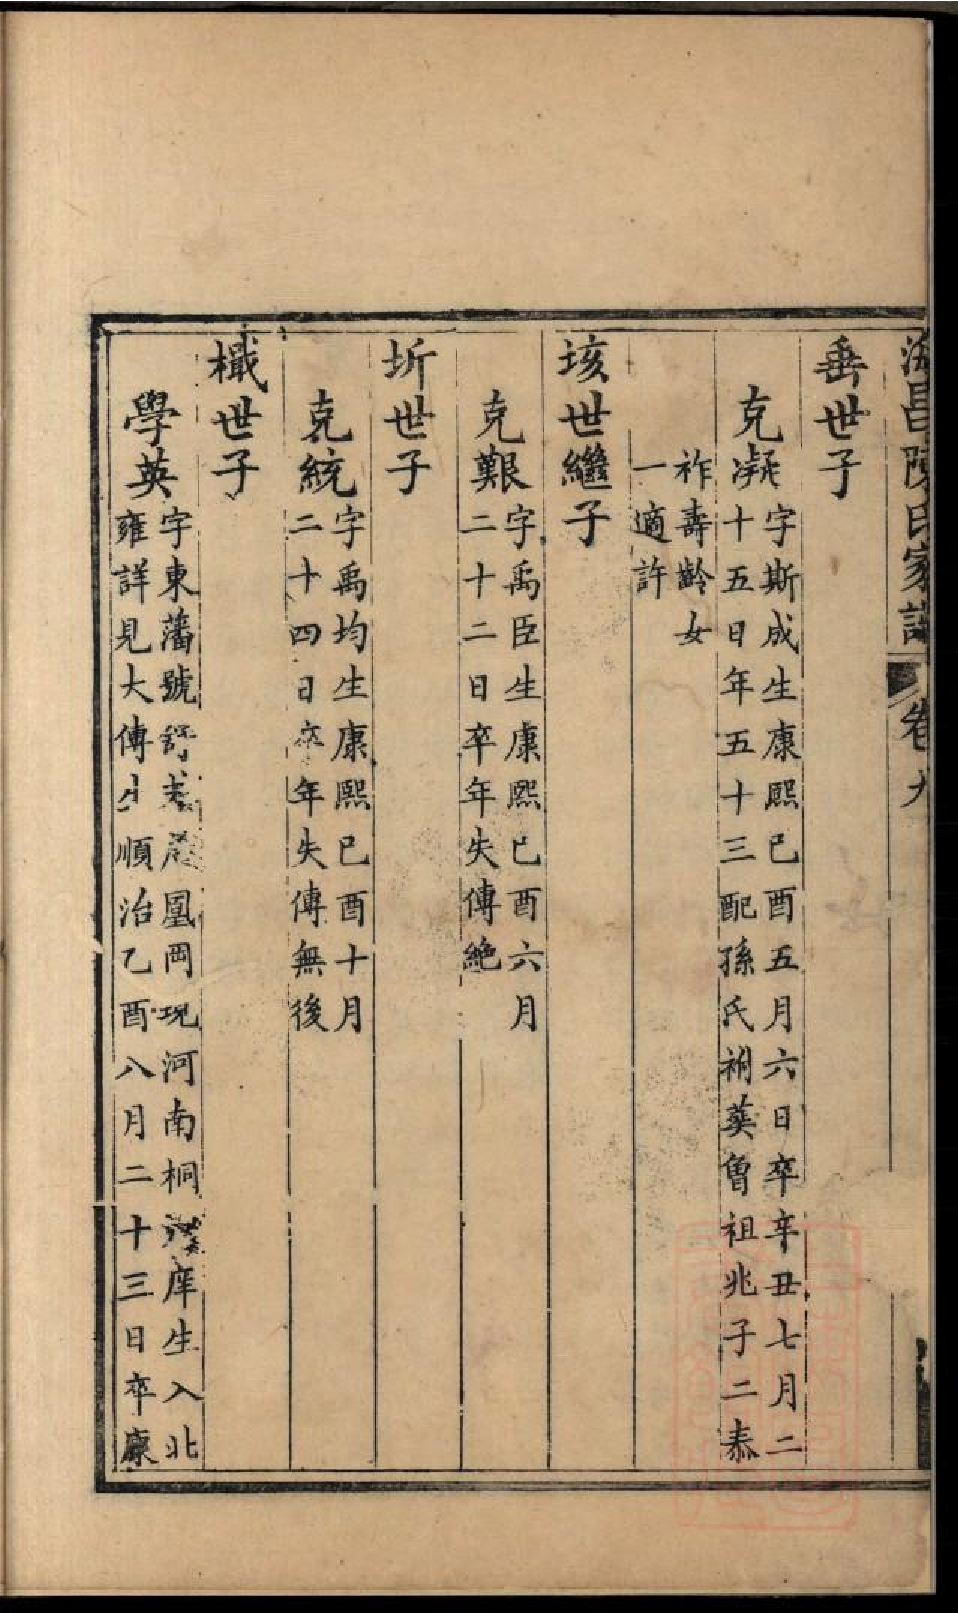 海昌陳氏家譜 卷九
垂世子
克凝
字斯成生康熙己酉五月六日卒辛丑七月二
十五日年五十三配孫氏祔葬曾祖兆子二泰
祚壽齡女
一適許
垓世繼子
克艱
字禹臣生康熙己酉六月
二十二日卒年失傳絶
圻世子
克統
字禹均生康熙己酉十月
二十四日卒年失傳無後
檝世子
學英
字東藩號 凰岡現河南桐 庠生入北
雍詳見大傳生順治乙酉八月二十三日卒康